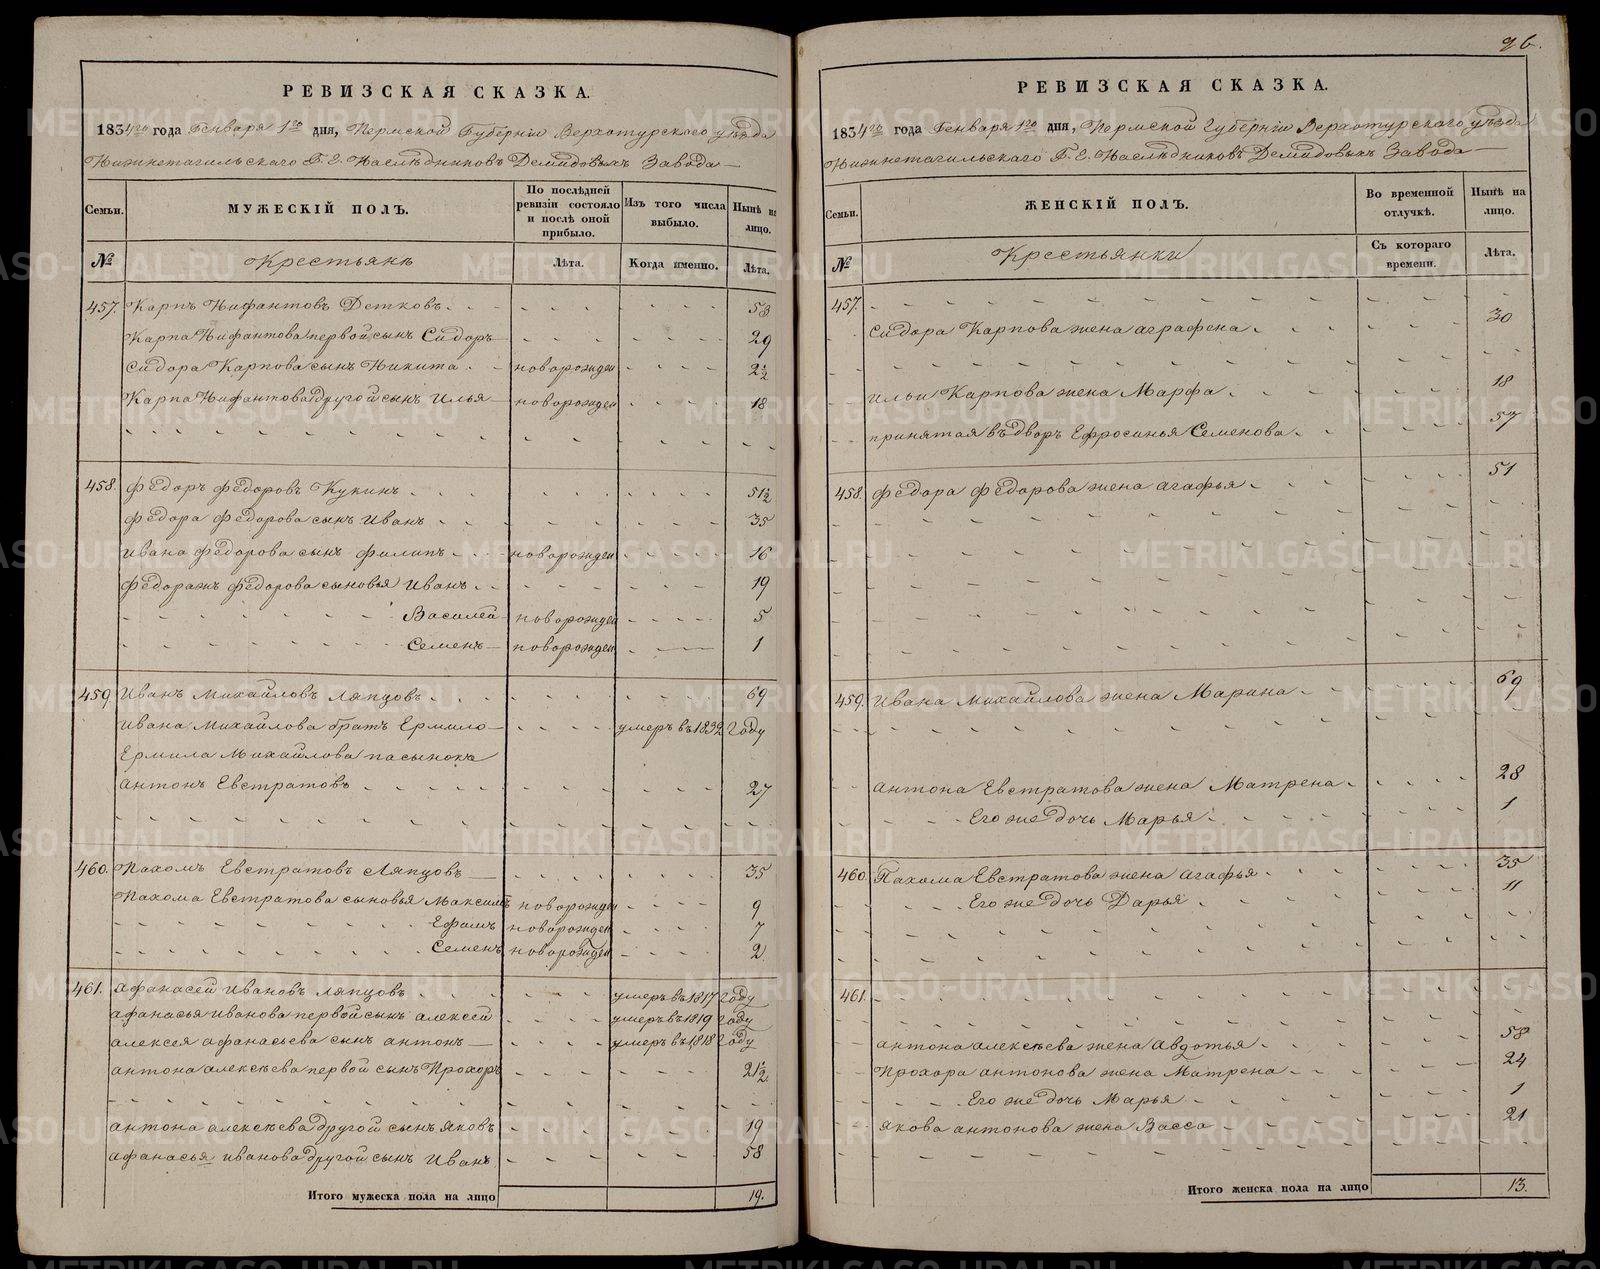 РЕВИЗСКАЯ СКАЗКА.
1834го года Генваря 1го дня, Пермской Губерніи Верхотурскаго уѣзда
Нижнетагильскаго Г. Е. Наслѣдниковъ Демидовыхъ Завода
Семьи. МУЖЕСКІЙ ПОЛЪ. По послѣдней ревизіи состояло и послѣ оной прибыло. Изъ того числа выбыло. Нынѣ на лицо.
№ Крестьянѣ Лѣта. Когда именно. Лѣта.
457. Карпъ Нифантовъ Детковъ 58
Карпа Нифантова первой сынъ Сидоръ 29
Сидора Карпова сынъ Никита новорожден 2½
Карпа Нифантова другой сынъ Илья новорожден 18
458. Федоръ Федоровъ Кукинъ 51½
Федора Федорова сынъ Иванъ 35
Ивана Федорова сынъ Филипъ новорожден 16
Федоражъ Федорова сыновья Иванъ 19
Василей новорожден 5
Семенъ новорожден 1
459. Иванъ Михайловъ Ляпцовъ 69
Ивана Михайлова братъ Ермило умеръ въ 1832 году
Ермила Михайлова пасынокъ
Антонъ Евстратовъ 27
460. Пахомъ Евстратовъ Ляпцовъ 35
Пахома Евстратова сыновья Максимъ новорожден 9
Ефимъ новорожден 7
Семенъ новорожден 2
461. Афанасей Ивановъ Ляпцовъ умеръ въ 1817 году
Афанасья Иванова первой сынъ Алексей умеръ въ 1819 году
Алексея Афанасьева сынъ Антонъ умеръ въ 1818 году
Антона Алексѣева первой сынъ Прохоръ 21½
Антона Алексѣева другой сынъ Яковъ 19
Афанасья Иванова другой сынъ Иванъ 58
Итого мужеска пола на лицо 19.
96.
РЕВИЗСКАЯ СКАЗКА.
1834го года Генваря 1го дня, Пермской Губерніи Верхотурскаго уѣзда
Нижнетагильскаго Г. Е. Наслѣдниковъ Демидовыхъ Завода
Семьи. ЖЕНСКІЙ ПОЛЪ. Во временной отлучкѣ. Нынѣ на лицо.
№ Крестьянки Съ котораго времени. Лѣта.
457.
Сидора Карпова жена Аграфена 30
Ильи Карпова жена Марфа 18
принятая въ дворъ Ефросинья Семенова 57
458. Федора Федорова жена Агафья 51
459. Ивана Михайлова жена Марина 69
Антона Евстратова жена Матрена 28
Его же дочь Марья 1
460. Пахома Евстратова жена Агафья 35
Его же дочь Дарья 11
461.
Антона Алексѣева жена Авдотья 58
Прохора Антонова жена Матрена 24
Его же дочь Марья 1
Якова Антонова жена Васса 21
Итого женска пола на лицо 13.
METRIKI.GASO-URAL.RU